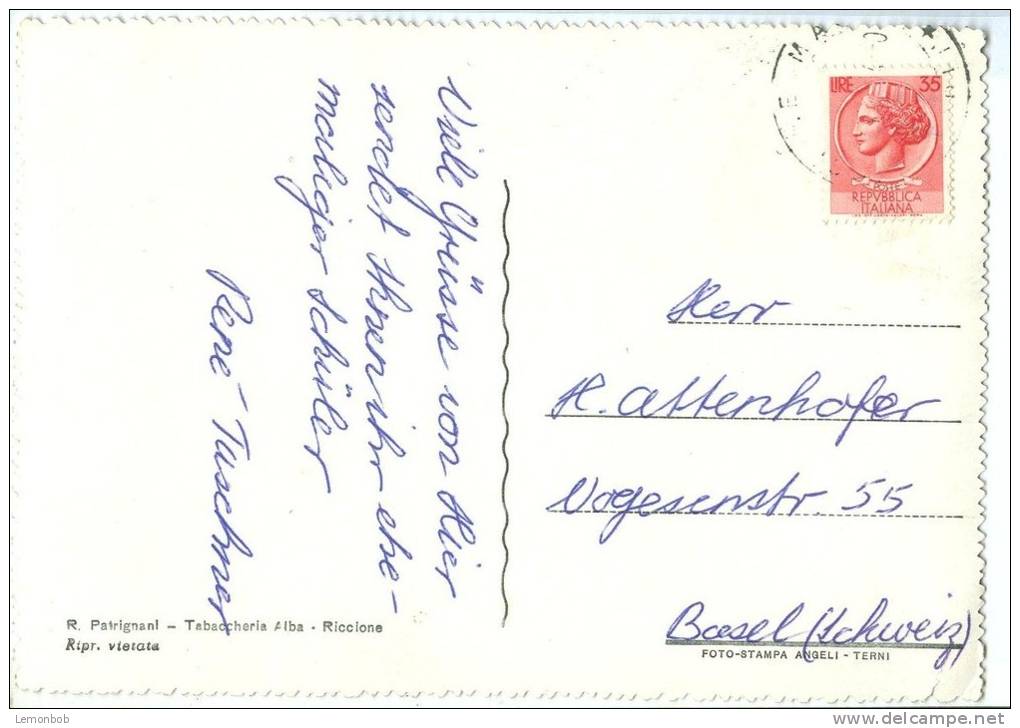 LIRE 35
POSTE
REPVBBLICA
ITALIANA
Viele Grüsse von Hier
sendet Ihnen ihr ehe-
maliger Schüler
René Tuschmer
Herr
H. Attenhofer
Vogesenstr. 55
Basel (Schweiz)
R. Patrignani – Tabaccheria Alba - Riccione
Ripr. vietata
FOTO-STAMPA ANGELI - TERNI
Lemonbob
www.delcampe.net